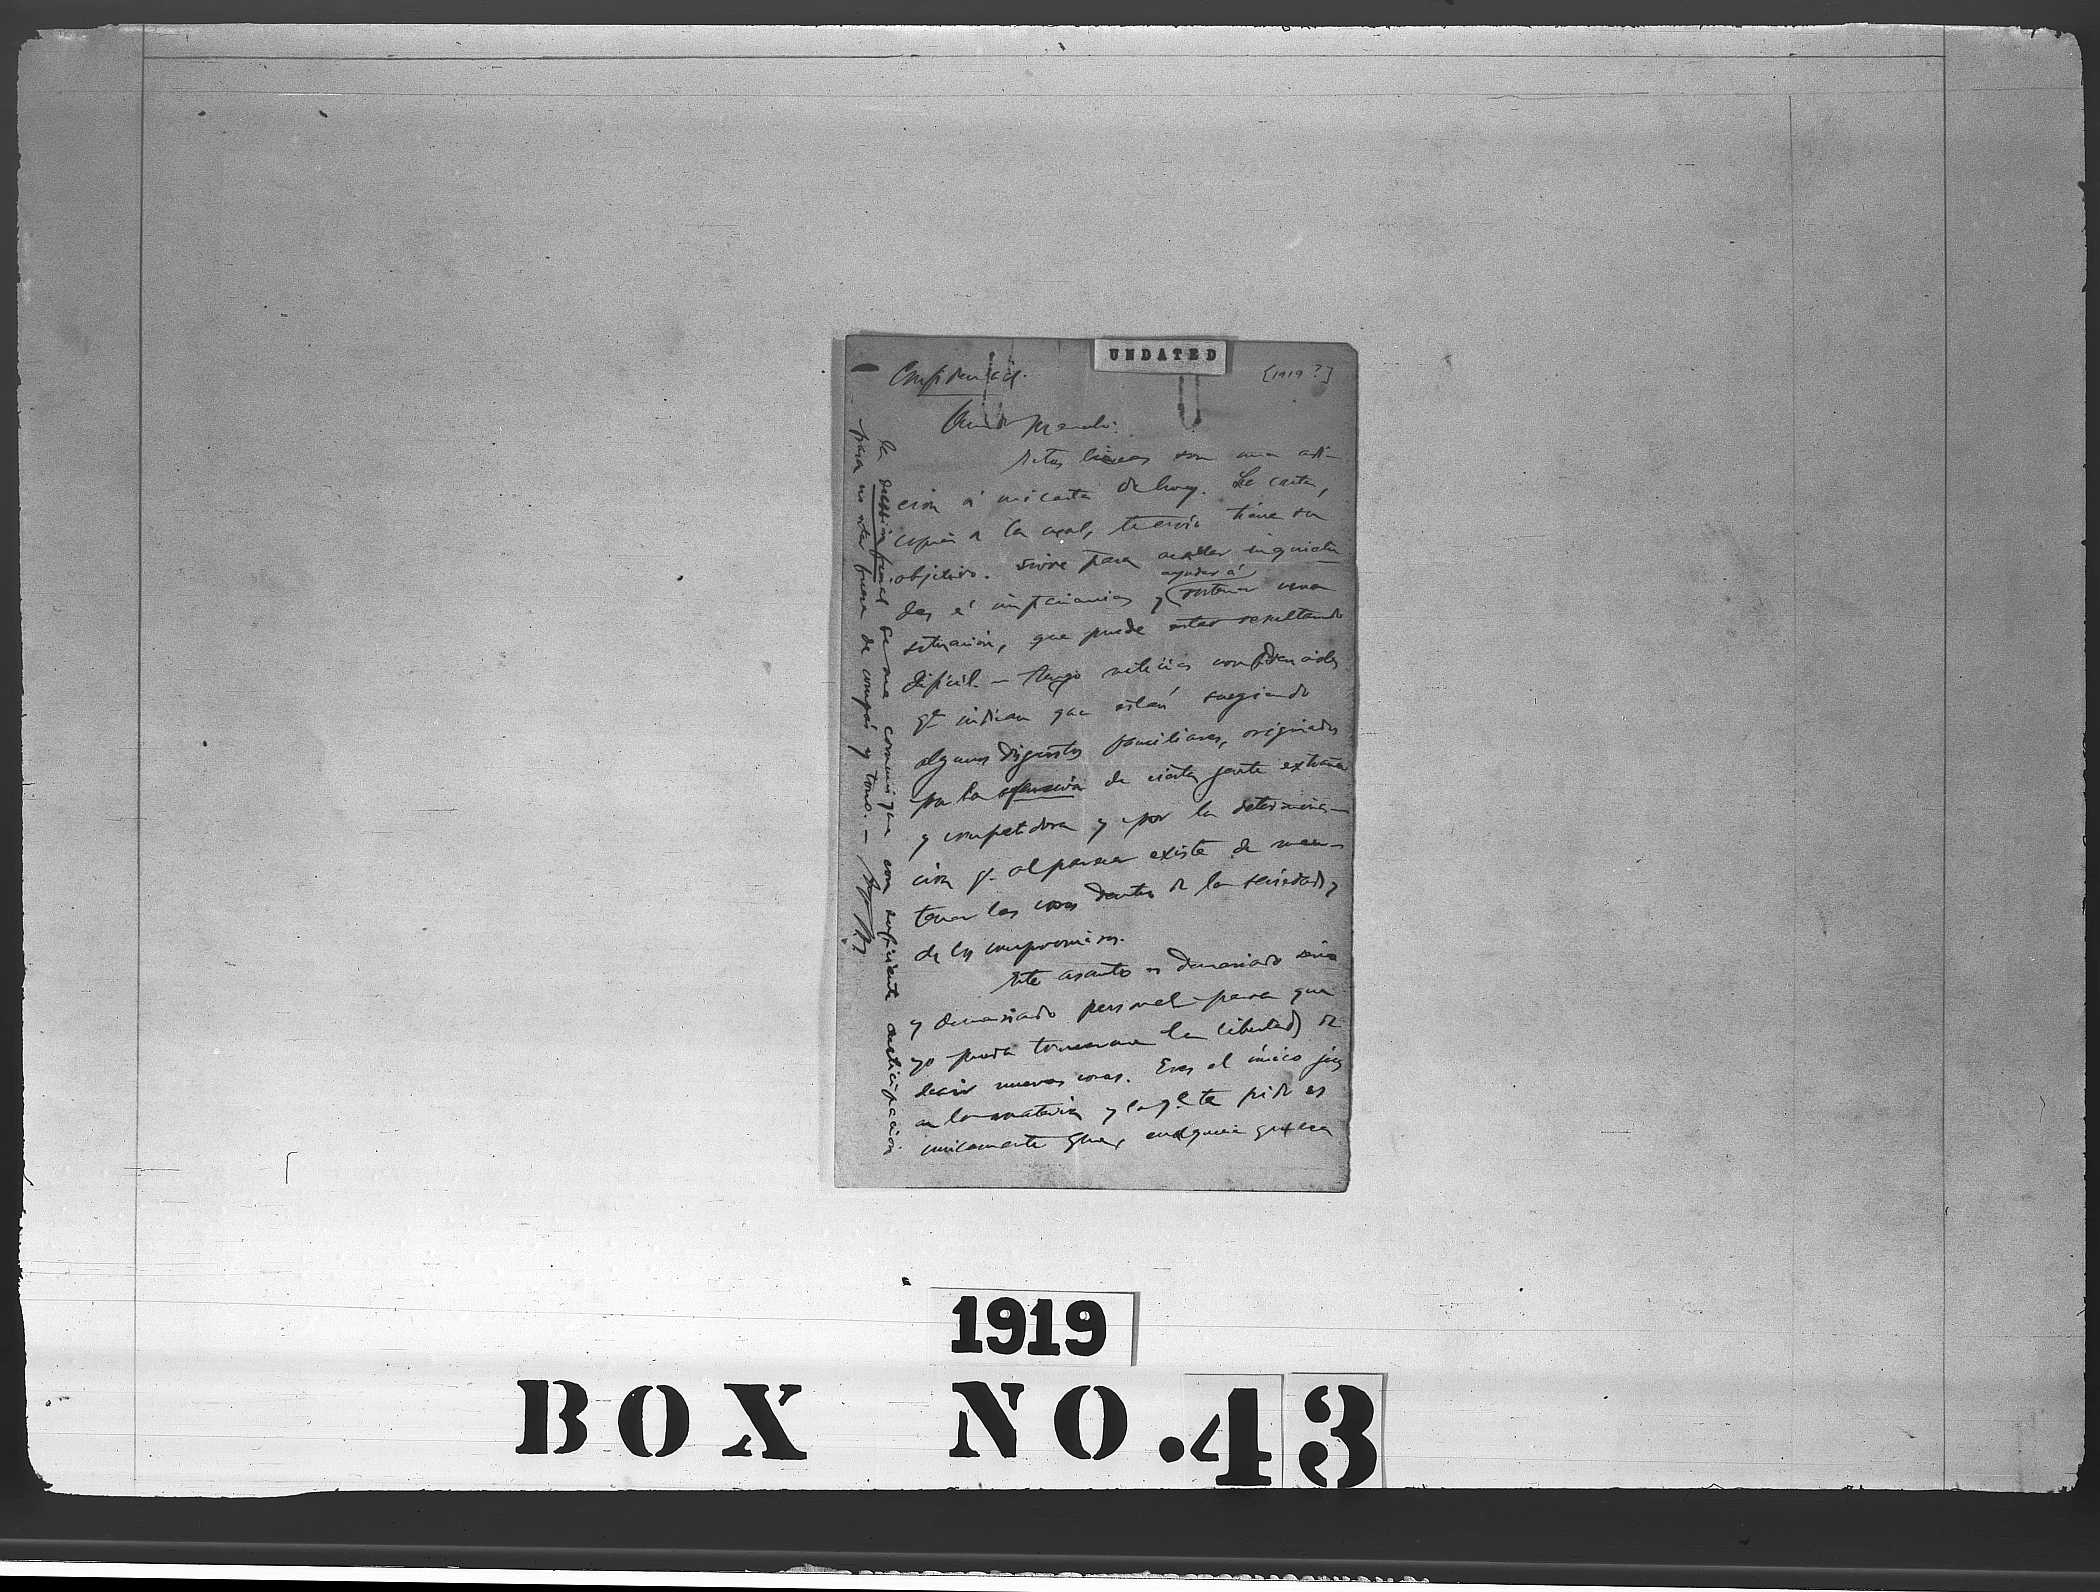 UNDATED
[1919?]
Confidencial.
Querido Manolo:
Estas lineas son una adi-
ción á mi carta de hoy. La carta,
copia de la cual, te envío tiene su
objetivo. Sirve para acallar inquietu
des é impaciencias y ayudar á sostener una
situación, que puede estar resultando
dificil. — Tengo noticias confidenciales
qe indican que están surgiendo
algunos disgustos familiares, originados
por la de cierta gente extraña
y competidora y por la determina-
ción qe al parecer existe de man-
tener las cosas dentro de la seriedad y
de los compromisos.
Este asunto es demasiado serio
y demasiado personal para que
yo pueda tomarme la libertad de
decir nuevas cosas. Eres el único juez
en la materia y lo qe te pido es
unicamente que, cualquiera que sea
la decision final se me comunique con suficiente anticipación
para no estar fuera de compás y tono. —
1919
BOX NO. 43